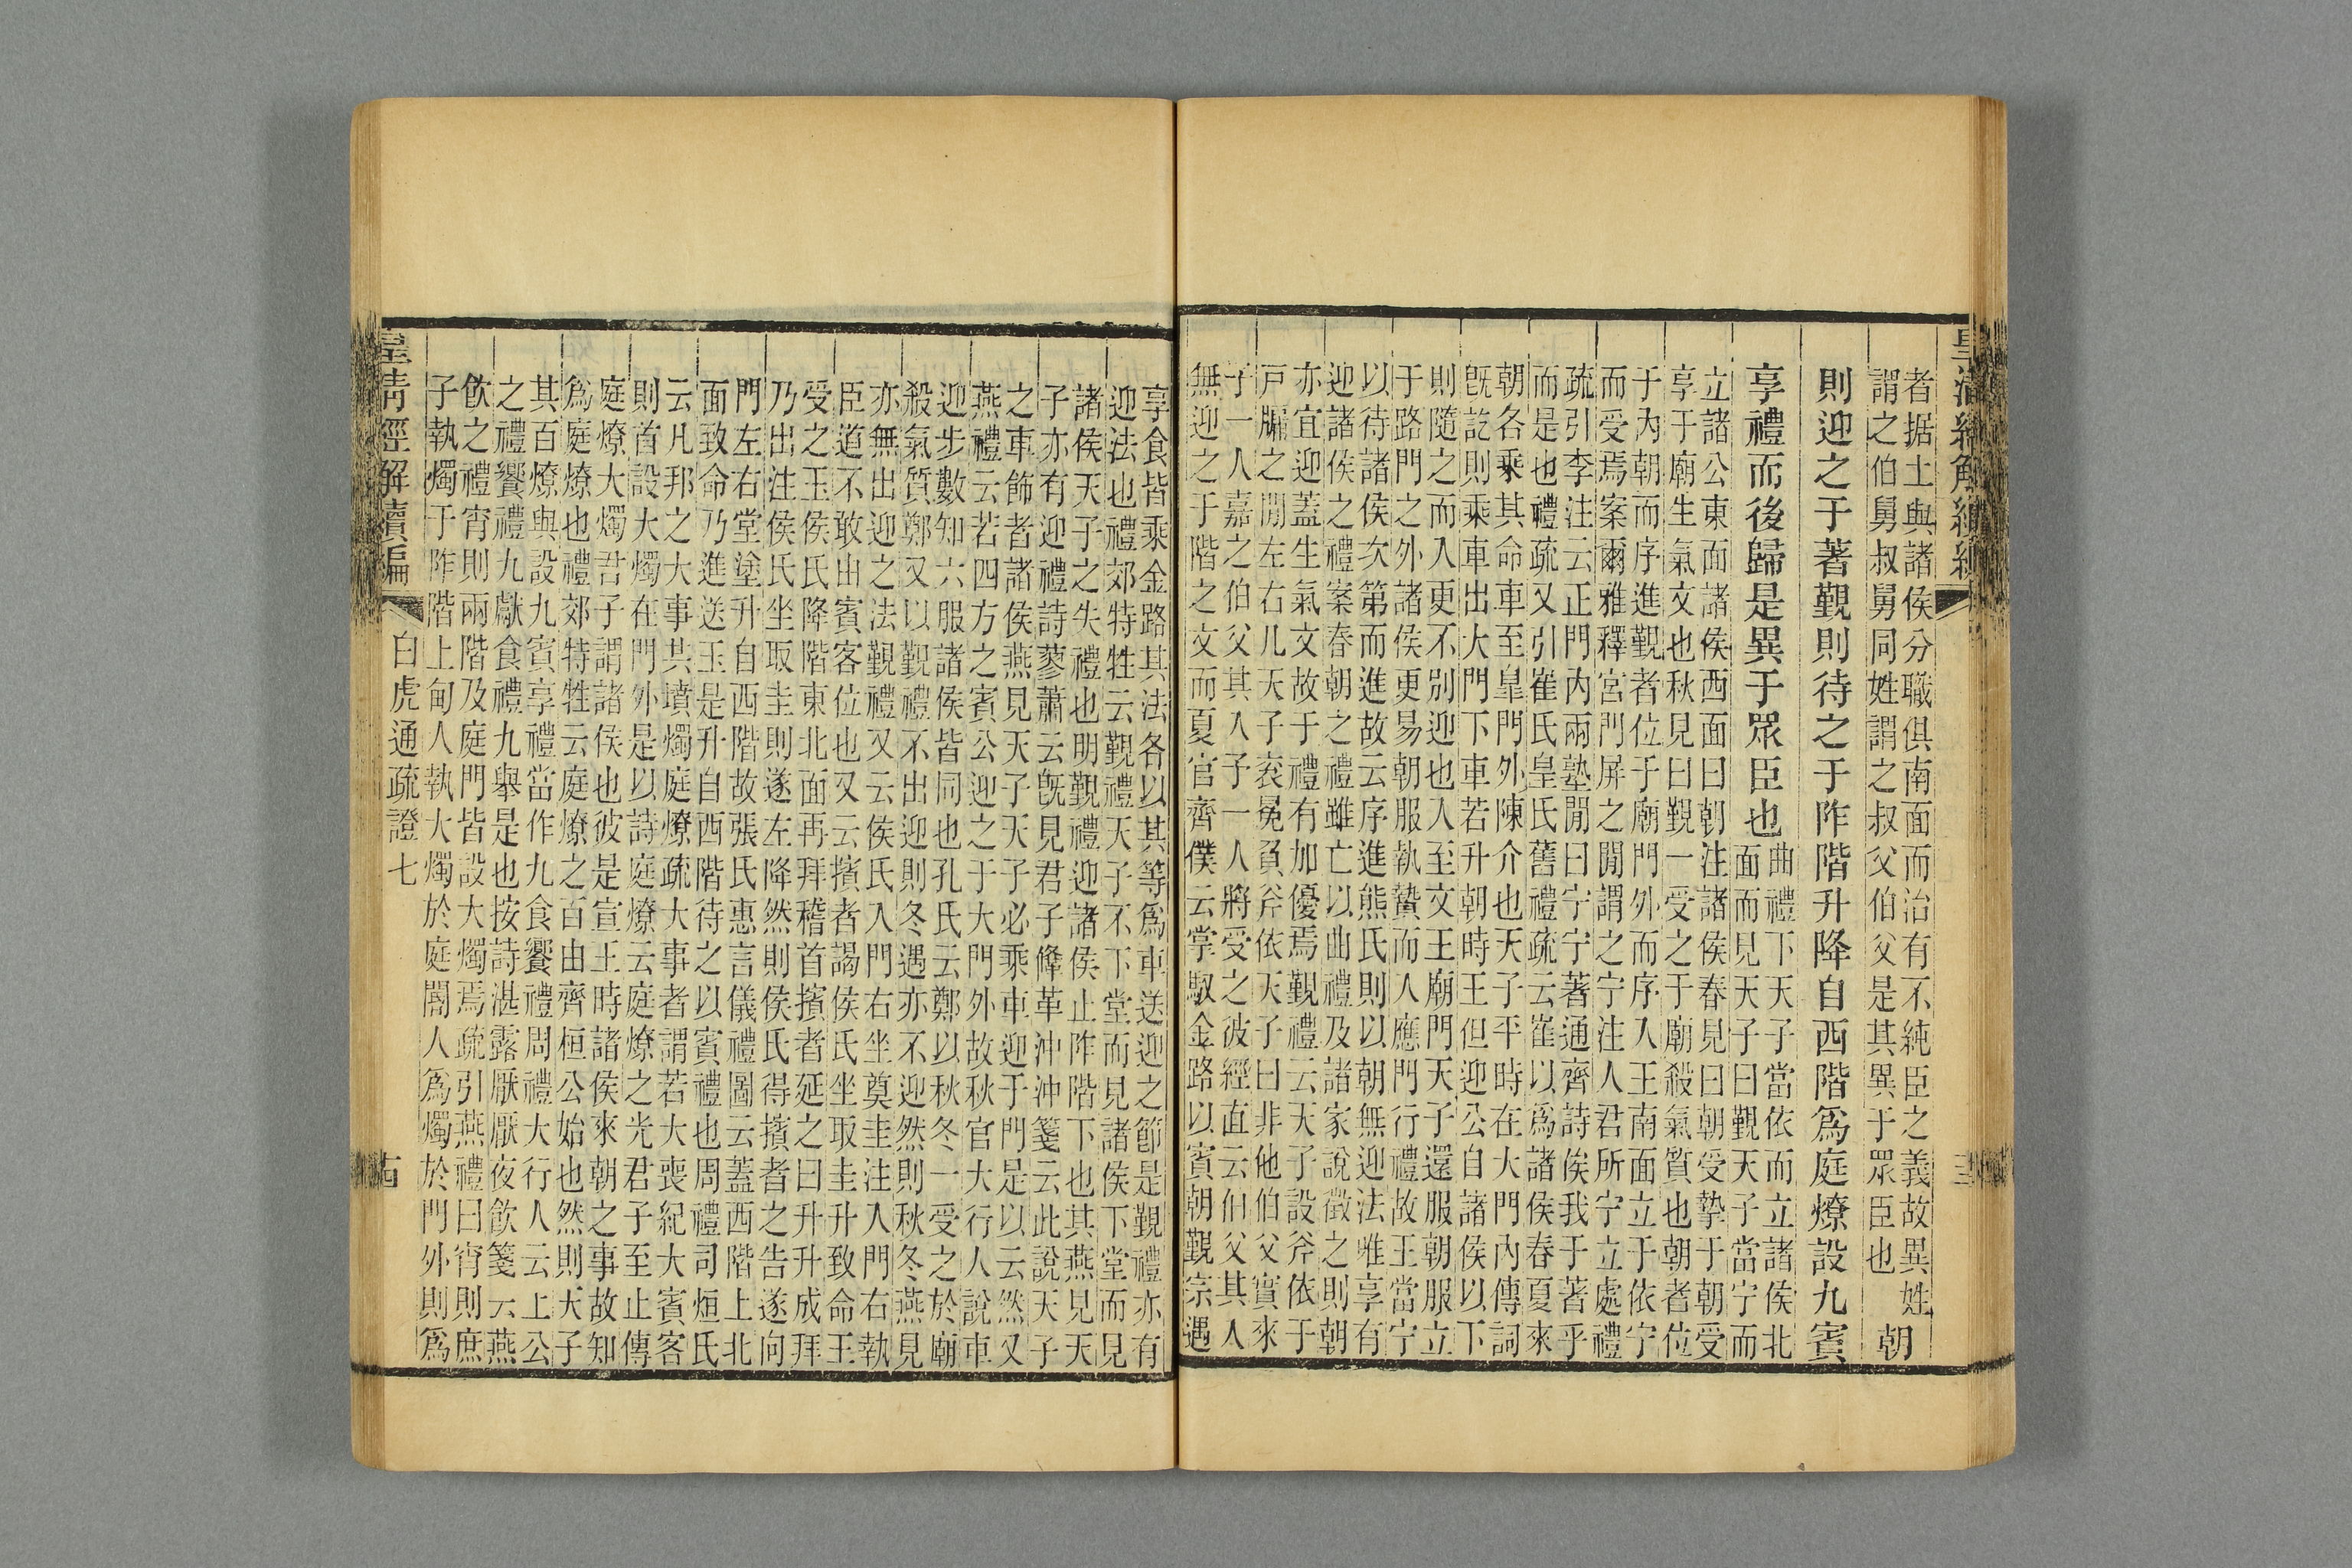 皇清經解續編
者据土與諸侯分職俱南面而治有不純臣之義故異姓
謂之伯舅叔舅同姓謂之叔父伯父是其異于眾臣也
朝
則迎之于著覲則待之于阼階升降自西階爲庭燎設九賓
享禮而後歸是異于眾臣也
曲禮下天子當依而立諸侯北
面而見天子曰覲天子當宁而
立諸公東面諸侯西面曰朝注諸侯春見曰朝受摯于朝受
享于廟生氣文也秋見曰覲一受之于廟殺氣質也朝者位
于內朝而序進覲者位于廟門外而序入王南面立于依宁
而受焉案爾雅釋宮門屏之閒謂之宁注人君所宁立處禮
疏引李注云正門內兩塾閒曰宁宁著通齊詩俟我于著乎
而是也禮疏又引崔氏皇氏舊禮疏云崔以爲諸侯春夏來
朝各乘其命車至皐門外陳介也天子平時在大門內傳詞
既訖則乘車出大門下車若升朝時王但迎公自諸侯以下
則隨之而入更不別迎也入至文王廟門天子還服朝服立
于路門之外諸侯更易朝服執贄而入應門行禮故王當宁
以待諸侯次第而進故云序進熊氏則以朝無迎法唯享有
迎諸侯之禮案春朝之禮雖亡以曲禮及諸家說徵之則朝
亦宜迎蓋生氣文故于禮有加優焉覲禮云天子設斧依于
戶牖之閒左右几天子衮冕負斧依天子曰非他伯父實來
予一人嘉之伯父其入予一人將受之彼經直云伯父其入
無迎之于階之文而夏官齊僕云掌馭金路以賓朝覲宗遇
享食皆乘金路其法各以其等爲車送迎之節是覲禮亦有
迎法也禮郊特牲云覲禮天子不下堂而見諸侯下堂而見
諸侯天子之失禮也明覲禮迎諸侯止阼階下也其燕見天
子亦有迎禮詩蓼蕭云既見君子鞗革沖沖箋云此說天子
之車飾者諸侯燕見天子天子必乘車迎于門是以云然又
燕禮云若四方之賓公迎之于大門外故秋官大行人說車
迎步數知六服諸侯皆同也孔氏云鄭以秋冬一受之於廟
殺氣質鄭又以覲禮不出迎則冬遇亦不迎然則秋冬燕見
亦無出迎之法覲禮又云侯氏入門右坐奠圭注入門右執
臣道不敢由賓客位也又云擯者謁侯氏坐取圭升致命王
受之玉侯氏降階東北面再拜稽首擯者延之曰升升成拜
乃出注侯氏坐取圭則遂左降然則侯氏得擯者之告遂向
門左右堂塗升自西階故張氏惠言儀禮圖云蓋西階上北
面致命乃進送玉是升自西階待之以賓禮也周禮司烜氏
云凡邦之大事共墳燭庭燎疏大事者謂若大喪紀大賓客
則首設大燭在門外是以詩庭燎云庭燎之光君子至止傳
庭燎大燭君子謂諸侯也彼是宣王時諸侯來朝之事故知
爲庭燎也禮郊特牲云庭燎之百由齊桓公始也然則天子
其百燎與設九賓享禮當作九食饗禮周禮大行人云上公
之禮饗禮九獻食禮九舉是也按詩湛露厭厭夜飲箋云燕
飲之禮宵則兩階及庭門皆設大燭焉疏引燕禮曰宵則庶
子執燭于阼階上甸人執大燭於庭閽人爲燭於門外則爲
皇清經解續編
白虎通疏證七